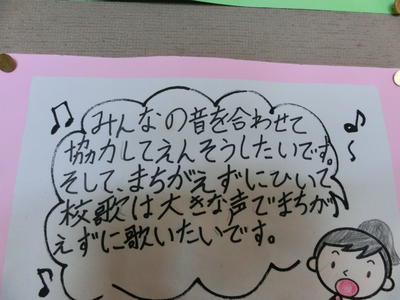 みんなの音を合わせて
協力してえんそうしたいです。
そして、まちがえずにひいて
校歌は大きな声でまちが
えずに歌いたいです。